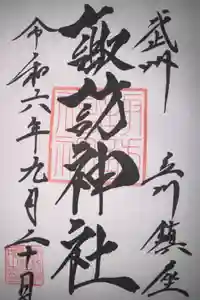 武州
立川鎮座
諏訪神社
令和六年九月二十日